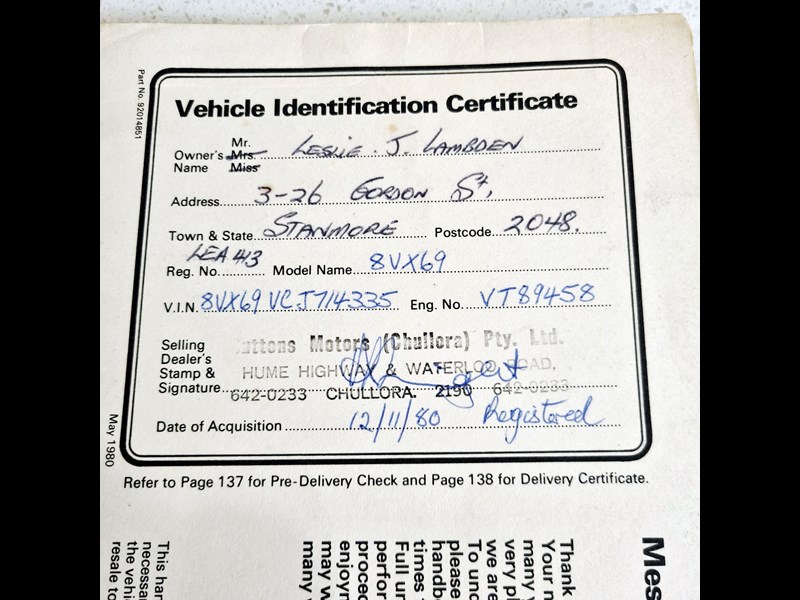 Part No. 92014851
Vehicle Identification Certificate
Mr.
Owner's Mrs. LESLIE. J. LAMBDEN
Name Miss
Address 3-26 GORDON St,
Town & State STANMORE Postcode 2048.
LEA 413
Reg. No. Model Name 8VX69
V.I.N. 8VX69 VCJ714335 Eng. No. VT89458
Selling
Dealer's
Stamp &
Signature
Suttons Motors (Chullora) Pty. Ltd.
HUME HIGHWAY & WATERLOO ROAD,
642-0233 CHULLORA. 2190 642-0233
Date of Acquisition 12/11/80 Registered
May 1980
Refer to Page 137 for Pre-Delivery Check and Page 138 for Delivery Certificate.
Mes
Thank
Your n
many v
very pl
we are
To und
please
handb
times
Full un
perfor
proced
enjoym
may w
many
This han
necessa
the vehi
resale to